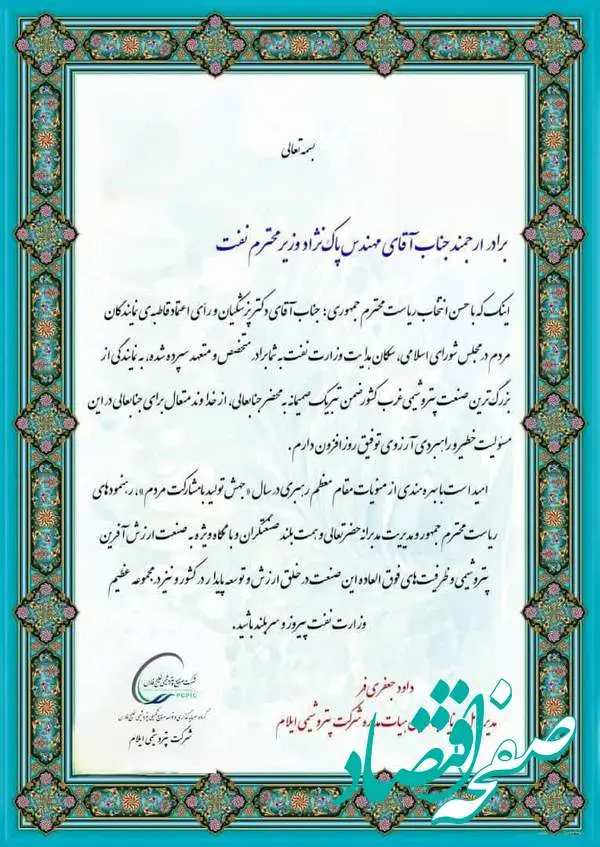 بسمه تعالی
برادر ارجمند جناب آقای مهندس پاک نژاد وزیر محترم نفت
اینک که با حسن انتخاب ریاست محترم جمهوری؛ جناب آقای دکتر پزشکیان و رأی اعتماد قاطبه ی نمایندگان
مردم در مجلس شورای اسلامی، سکان هدایت وزارت نفت به شما برادر متخصص و متعهد سپرده شده، به نمایندگی از
بزرگ ترین صنعت پتروشیمی غرب کشور ضمن تبریک صمیمانه به محضر جنابعالی، از خداوند متعال برای جنابعالی در این
مسئولیت خطیر و راهبردی آرزوی توفیق روز افزون دارم.
امید است با بهره مندی از منویات مقام معظم رهبری در سال «جهش تولید با مشارکت مردم»، رهنمودهای
ریاست محترم جمهور و مدیریت مدبرانه حضرتعالی و همت بلند صنعتگران و با نگاه ویژه به صنعت ارزش آفرین
پتروشیمی و ظرفیت های فوق العاده این صنعت در خلق ارزش و توسعه پایدار در کشور و نیز در مجموعه عظیم
وزارت نفت پیروز و سربلند باشید.
داود جعفری فر
هیات مدیره شرکت پتروشیمی ایلام
شرکت صنایع پتروشیمی خلیج فارس
PGPIC
شرکت پتروشیمی ایلام
صفحه اقتصاد